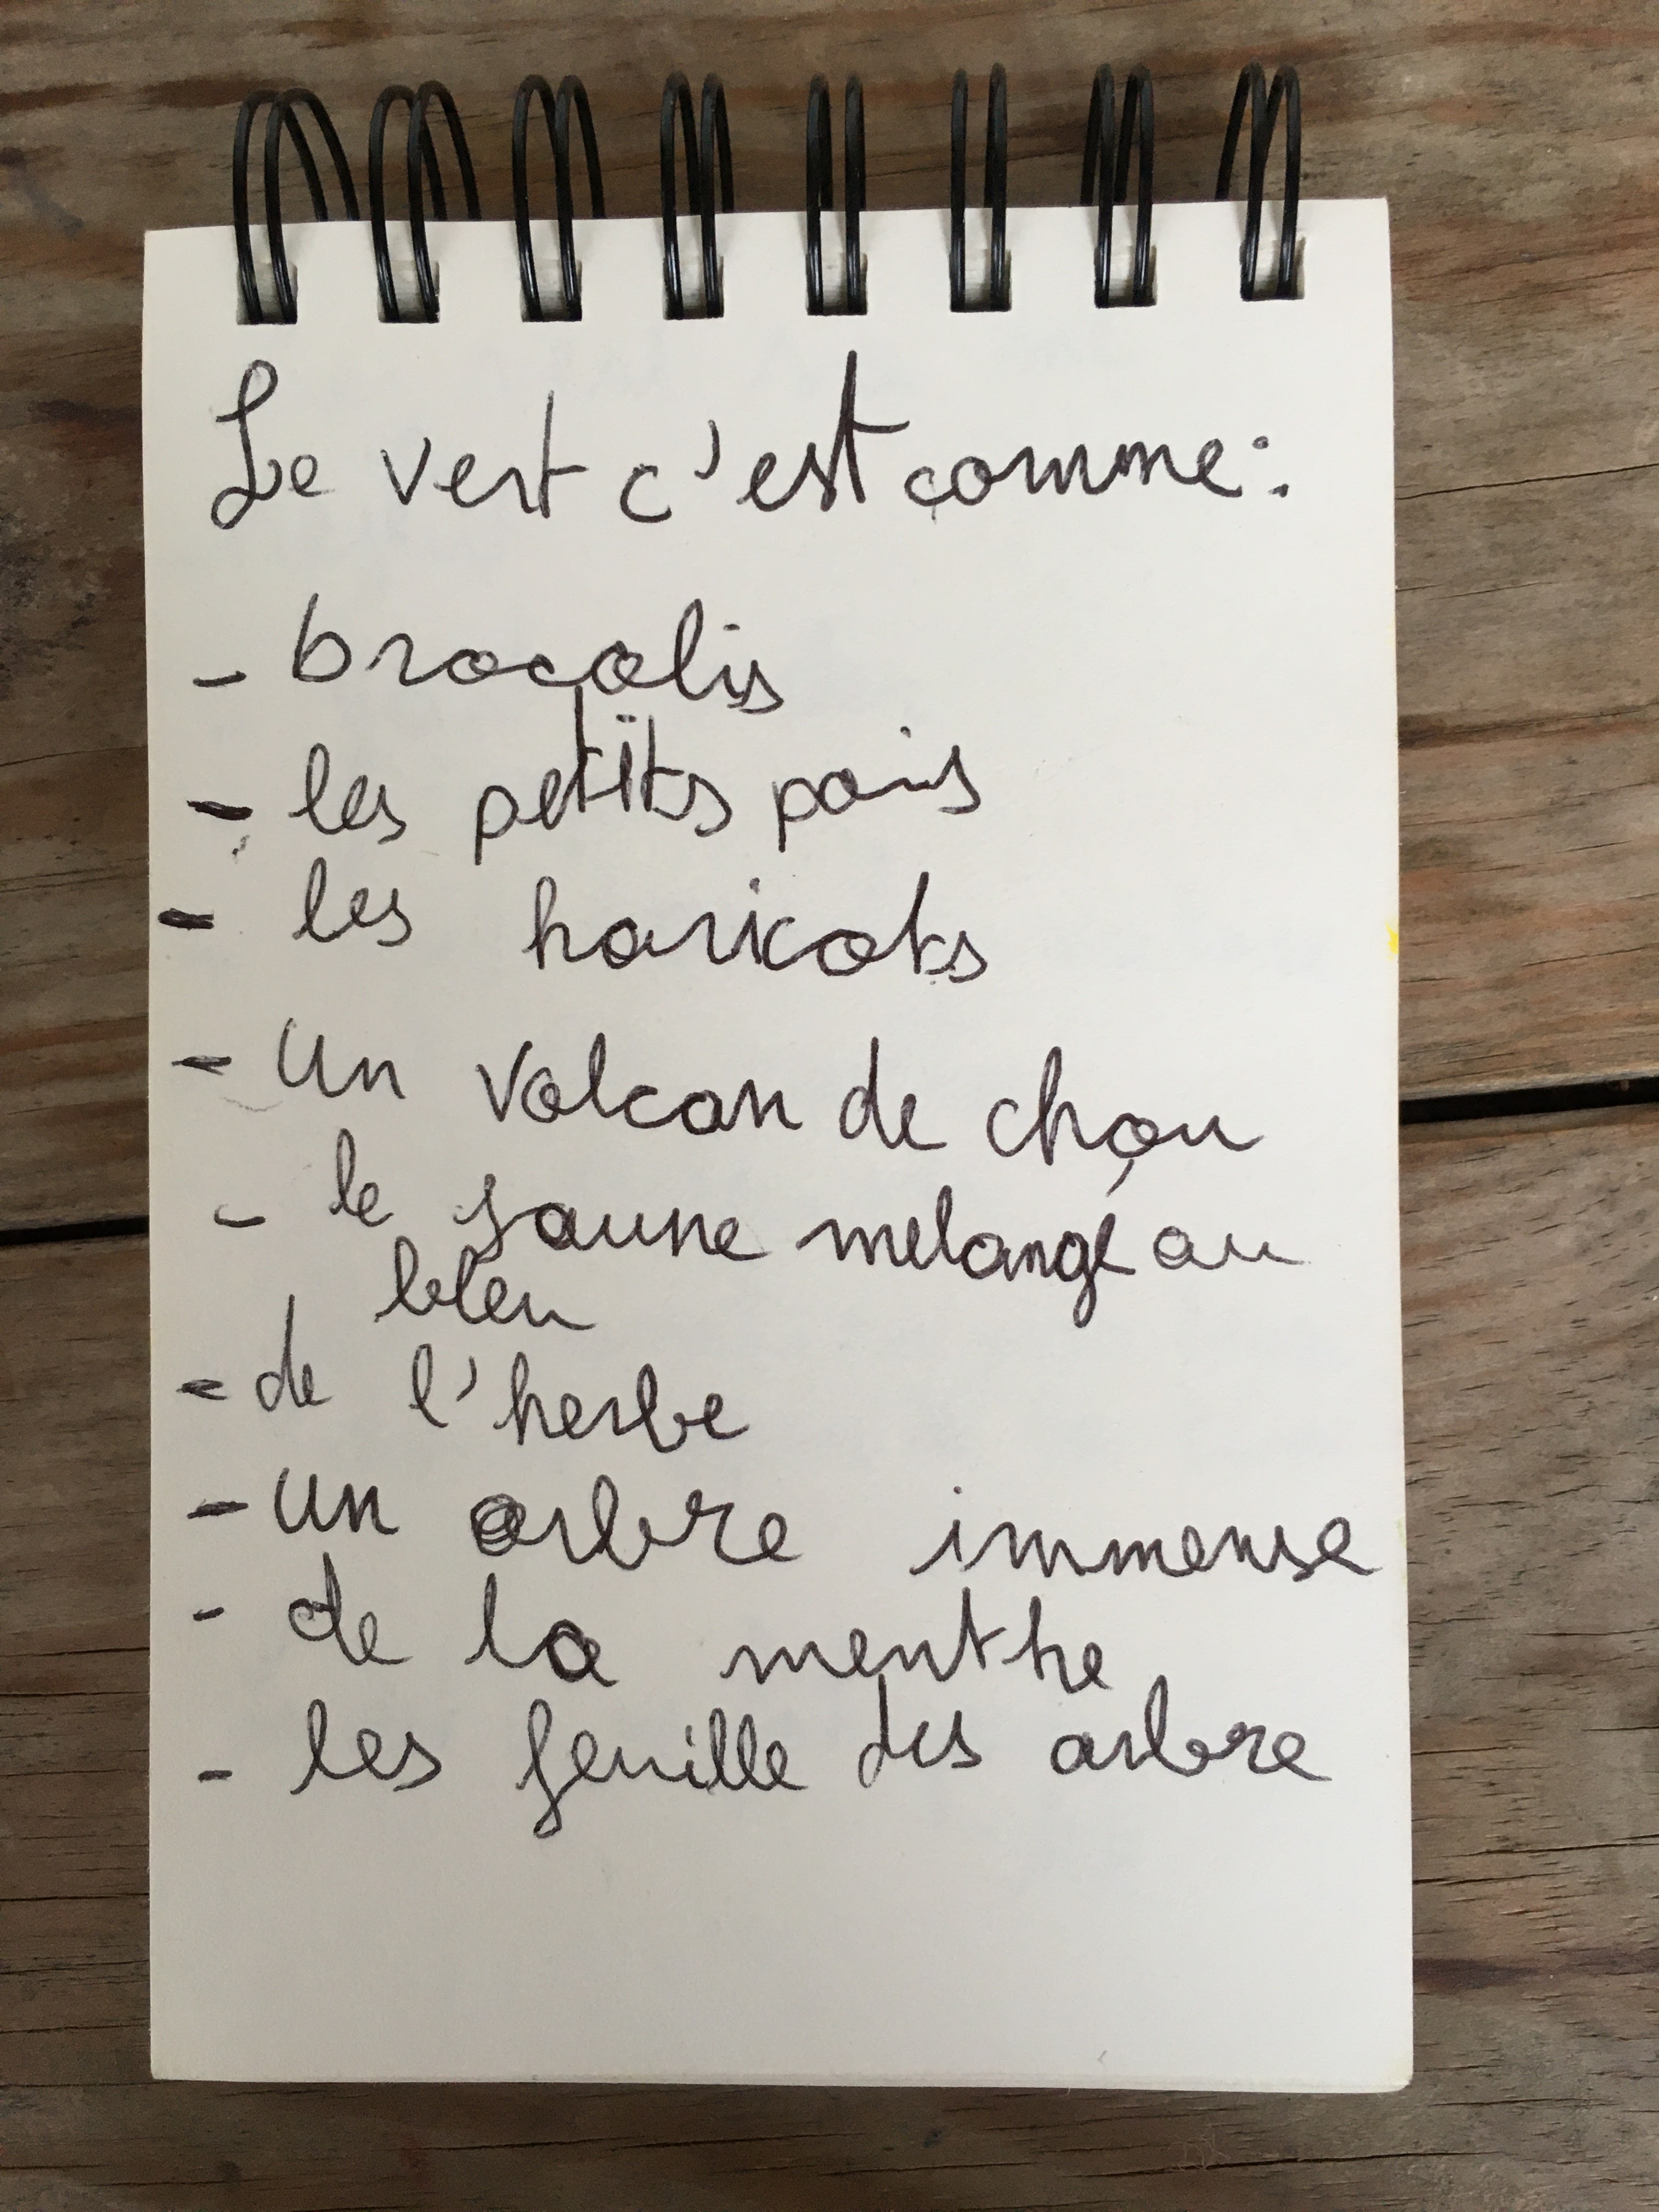 Le vert c'est comme:
- brocolis
- les petits pois
- les haricots
- un volcan de chou
- le jaune melangé au
bleu
- de l'herbe
- un arbre immense
- de la menthe
- les feuille des arbre